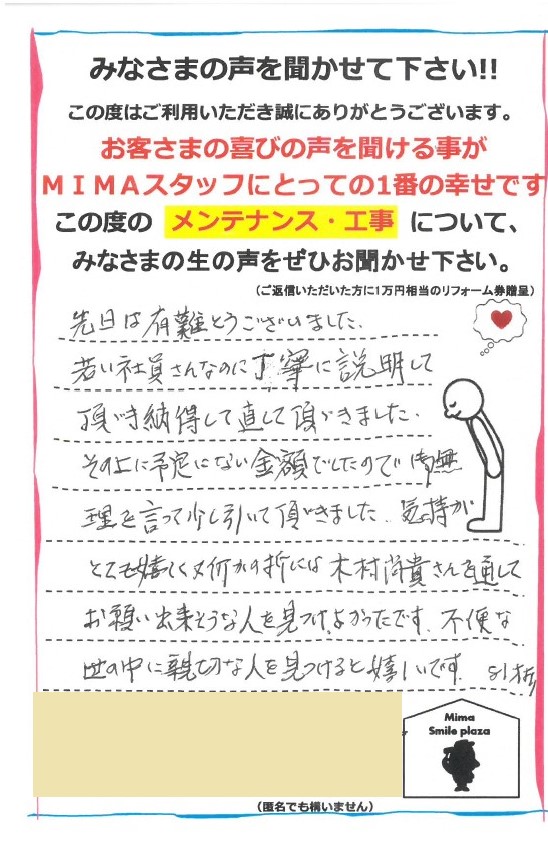 みなさまの声を聞かせて下さい!!
この度はご利用いただき誠にありがとうございます。
お客さまの喜びの声を聞ける事が
MIMAスタッフにとっての1番の幸せです
この度の メンテナンス・工事 について、
みなさまの生の声をぜひお聞かせ下さい。
(ご返信いただいた方に1万円相当のリフォーム券贈呈)
先日は有難とうございました.
若い社員さんなのに丁寧に説明して
頂き納得して直して頂きました.
その上に予定にない金額でしたので御無
理を言って少し引いて頂きました. 気持が
とても嬉しく又何かの折には木村尚貴さんを通して
お願い出来そうな人を見つけよかったです. 不便な
世の中に親切な人を見つけると嬉しいです.
Mima
Smile plaza
(匿名でも構いません)